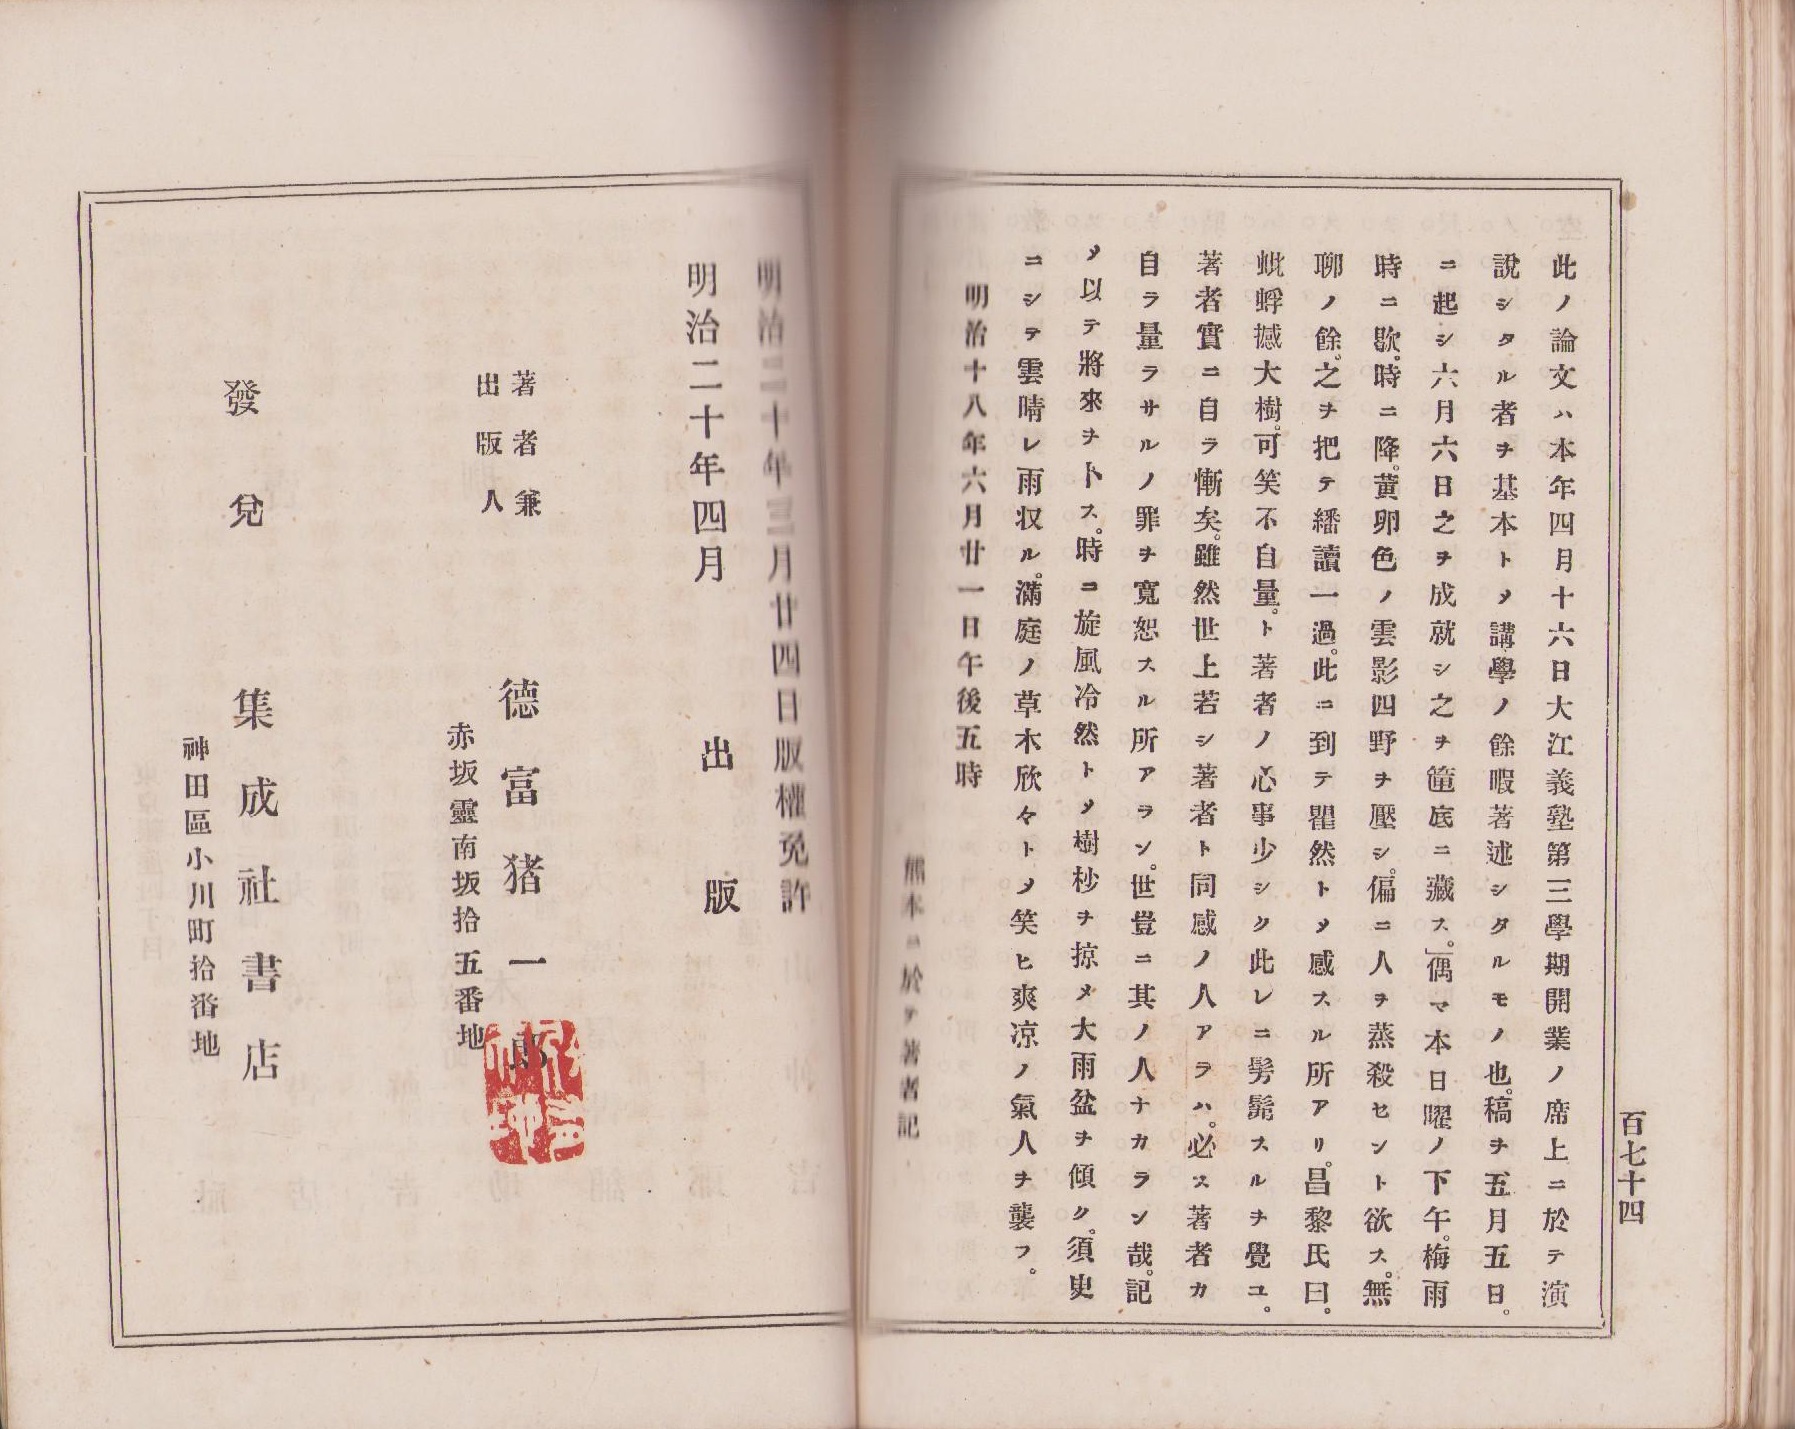 百七十四
此ノ論文ハ本年四月十六日大江義塾第三學期開業ノ席上ニ於テ演
說シタル者ヲ基本トメ講學ノ餘暇著述シタルモノ也。稿ヲ五月五日。
ニ起シ六月六日之ヲ成就シ之ヲ篋底ニ藏ス。偶マ本日曜ノ下午。梅雨
時ニ歇。時ニ降。黃卵色ノ雲影四野ヲ壓シ。偏ニ人ヲ蒸殺セント欲ス。無
聊ノ餘。之ヲ把テ繙讀一過。此ニ到テ瞿然トメ感スル所アリ。昌黎氏曰。
蚍蜉撼大樹。可笑不自量。ト著者ノ心事少シク此レニ髣髴スルヲ覺ユ。
著者實ニ自ラ慚矣。雖然世上若シ著者ト同感ノ人アラハ。必ス著者カ
自ラ量ラサルノ罪ヲ寬恕スル所アラン。世豈ニ其ノ人ナカラン哉。記
メ以テ將來ヲトス。時コ旋風冷然トメ樹杪ヲ掠メ大雨盆ヲ傾ク。須臾
ニシテ雲晴レ雨収ル。滿庭ノ草木欣々トメ笑ヒ爽凉ノ氣人ヲ襲フ。
明治十八年六月廿一日午後五時
熊本ニ於テ著者記
明治二十年三月廿四日版權免許
明治二十年四月 出版
著者兼
出版人
德富猪一郎
赤坂靈南坂拾五番地
發兌 集成社書店
神田區小川町拾番地